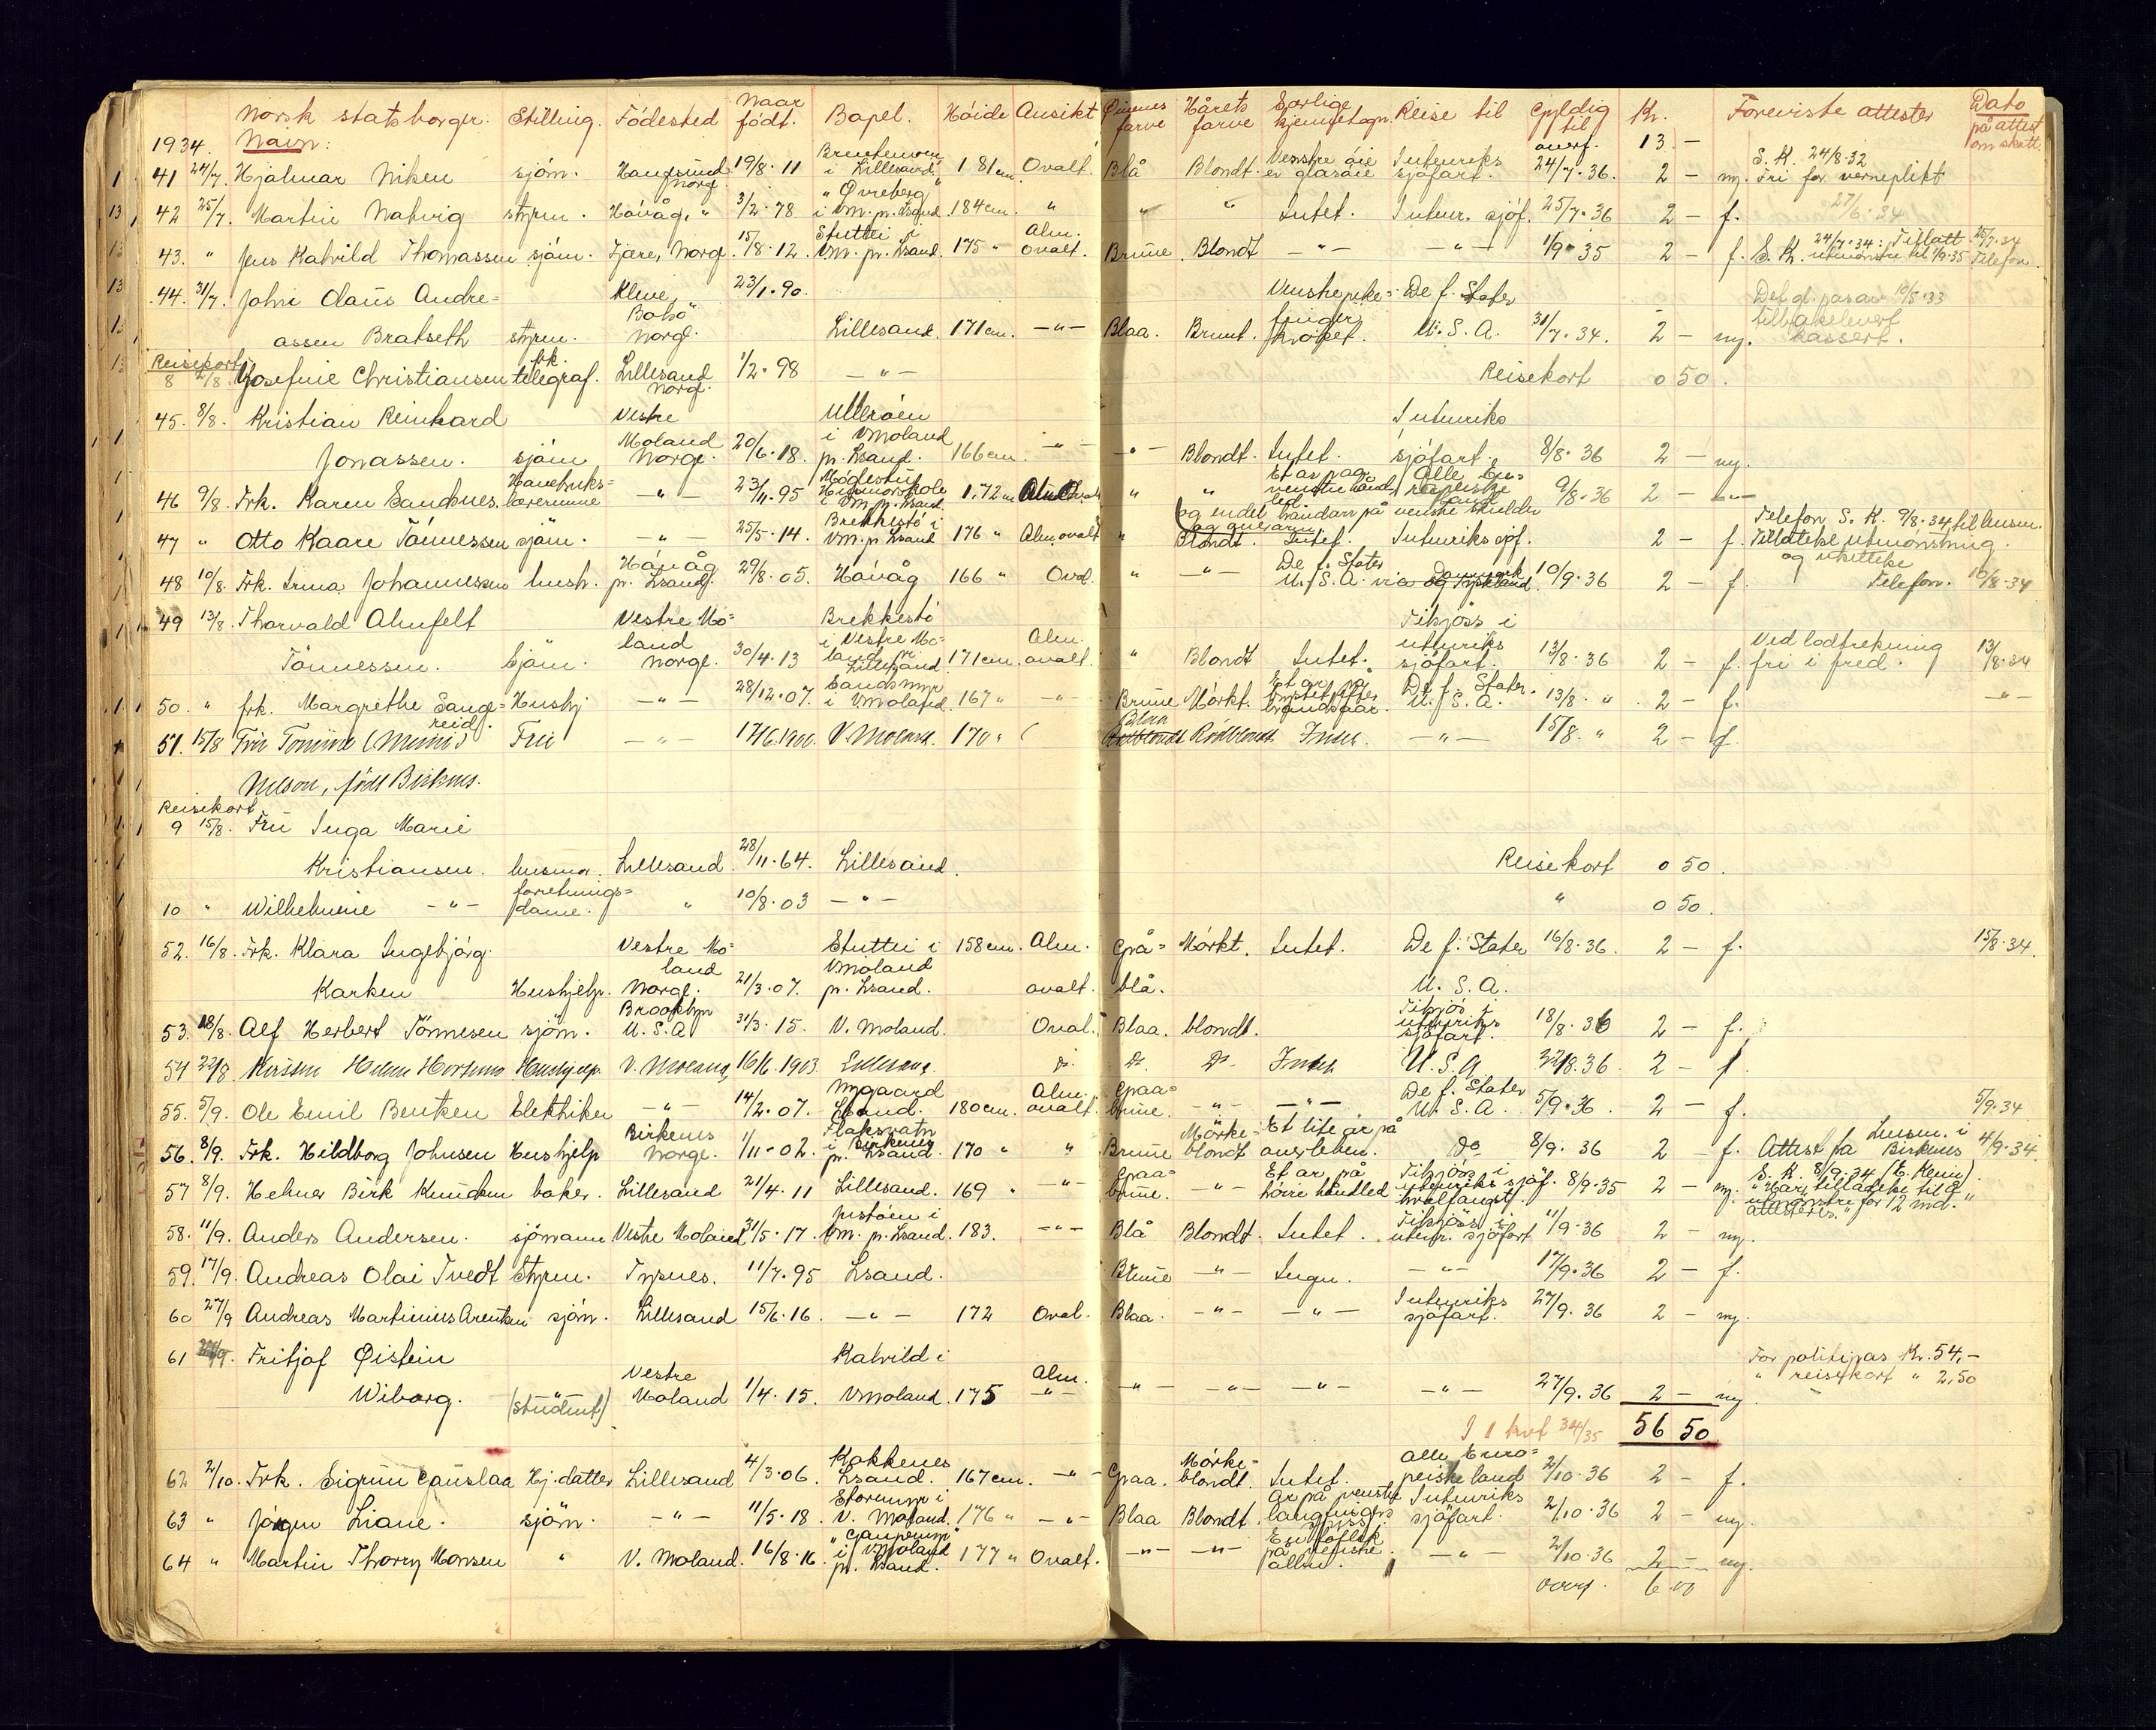 Norsk statsborger. Stilling. Födested Naar födt. Bopel. Höide Ansikt Öinenes farve Hårets farve Særlige kjennetegn. Reise til Gyldig til Kr. Foreviste attester Dato på attest om skatt
1934. Navn: overf. 13. -
41 24/7. Hjalmar Niksen sjöm. Haugsund Norg. 19/8. 11 i Lillesand 181 cm. Ovalt. Blå Blondt. Venstre öie er glasöie Utenriks sjöfart. 24/7. 36. 2 - ny. S. K. 24/8-32 Fri for verneplikt
42 25/7. Martin Natvig styrm. Hövåg, " 3/2. 78 "Övreberg" i VM. pr. Lsand. 184 cm. " " " Intet. Utenr. sjöf. 25/7. 36 2 - f. 27/6. 34
43. " Jens Kalvild Thomassen sjöm. Fjære, Norg. 15/8. 12. Stutten i VM. pr. Lsand. 175 " Alm. ovalt. Brune. Blondt -"- -"- 1/9. 35 2 - f. S. K. 24/7. 34: Tillatt utmönstre til 1/9. 35 25/7. 34 Telefon.
44. 31/7. John Olaus Andre= Kleve, 23/1. 90. Venstre peke= De f. Stater Det gl. pas av 10/8. 33
assen Bratseth styrm. Norg. Lillesand. 171 cm. -"- Blaa. Brunt. finger kroket. U. S. A. 31/7. 34. 2 - ny. tilbakelevert kassert.
Reisekort 8 Josefine Christiansen telegraf. frk. Lillesand Norg. 1/2. 98 -"- Reisekort 0 50.
45. 8/8. Kristian Reinhard Vestre Ulleröen Utenriks
Jonassen. sjöm Moland Norge. 20/6. 18. i VMoland pr. Lsand. 166 cm. -"- -"- Blondt. Intet. sjöfart. 8/8. 36 2 - ny.
46 9/8. Frk. Karen Sandnes. Havebruks= lærerinne -"- 23/11. 95 1.72 m " " Et ar paa venstre håndled Alle Eu= ropeiske land 9/8. 36 2 - -"-
og endel brandarr på venstre skulder og overarm
47 " Otto Kaare Tönnessen sjöm. -"- 25/5. 14. Brekkestö i VM. pr. Lsand 176 " Alm. ovalt " Blondt. Intet. Utenriks sjöf. 2 - f. Telefon S. K. 9/8. 34 til lensm. Tillateke utmönstring.
48 10/8. Frk. Irma Johannessen hush. Hövåg pr. Lsand. 29/8. 05. Hövåg 166 " Oval. " -"- De f. Stater U. S. A. via Danmark og Tyskland. 10/9. 36 2 - f. Telefon. 10/8. 34
49 13/8. Thorvald Almfelt Vestre Mo= Brekkestö Tilsjöss i
Tönnessen. sjöm. land Norge. 30/4. 13 i Vestre Mo= land pr. Lillesand. 171 cm. Alm. ovalt. " Blondt Intet. utenriks sjöfart. 13/8. 36 2 - f. Ved lodtrekning fri i fred. 13/8. 34
50. " frk. Margrethe Sange= reid. Hushj -"- 28/12. 07. Sandsmyr i VMoland. 167 " -"- Brune Mörkt. De f. Stater. U. S. A. 13/8. " 2 - f. -"-
51. 15/8 Fru Tomine (Mimi) Fru -"- 17/6 1900. V. Moland. 170 " Blaa Rödblondt Intet. -"- 15/8. " 2 - f.
Nelson, födt Birknes.
Reisekort
9 15/8. Fru Inga Marie
Kristiansen. husmor. Lillesand. 28/11. 64. Lillesand. Reisekort 0 50.
10 " Wilhelmine -"- forretnings= dame. " 10/8. 03 -"- " 0 50.
52. 16/8. Frk. Klara Ingebjörg. Vestre Mo= Stutten i 158 cm. Alm. Grå= Mörkt. Intet. De f. Stater 16/8. 36. 2 - f. 15/8. 34.
Karken Hushjelp. land Norge. 21/3. 07. VMoland pr. Lsand. ovalt. blå. U. S. A.
53. 18/8. Alf Herbert Tönnesen sjöm. Brooklyn U. S. A 31/3. 15. V. Moland. Oval. Blaa. blondt. Tilsjös i utenriks sjöfart. 18/8. 36 2 - f.
54 22/8 Kirsten Helene Hushjelp. V. Moland 16/6. 1903. Lillesand. do. Do Do Intet U. S. A. 22/8. 36. 2 - f.
55. 5/9. Ole Emil Bentsen Elektriker -"- 14/2. 07. Nygaard Lsand. 180 cm. Alm. ovalt. Graa= brune. -"- -"- De f. Stater U. S. A. 5/9. 36. 2 - f. 5/9. 34
56. 8/9. Frk. Hildborg Johnsen Hushjelp Birkenes Norge. 1/11. 02. Flaksvatn i Birkenes pr. Lsand. 170 " " Brune Mörke= blondt Et lite ar på overleben. Do 8/9. 36 2 - f. Attest fra Lensm. i Birkenes 4/9. 34.
57 8/9. Helmer Birk Knudsen baker. Lillesand 21/4. 11 Lillesand. 169 " -"- Graa= brune. -"- Et ar på höire håndled Tilsjöss i utenriks sjöf. hvalfangst. 8/9. 35 2 - ny. S. K. 8/9. 34 (E. Kenn). "Har tilladelse til å utmönstre for 12 md." attesteres.
58. 11/9. Anders Andersen. sjömann Vestre Moland 31/5. 17. Justöen i VM. pr. Lsand. 183. -"- Blå Blondt. Intet. Tilsjöss i utenr. sjöfart 11/9. 36 2 - ny.
59. 17/9. Andreas Olai Tvedt Styrm. Tysnes. 11/7. 95 Lsand. Brune -"- Ingen. -"- 17/9. 36 2 - f.
60 27/9 Andreas Martinius Arentsen sjöm. Lillesand 15/6. 16. -"- 172 Oval. Blaa. -"- -"- Utenriks sjöfart. 27/9. 36 2 - ny.
61 Fritjof Öistein Kalvild i For politipas Kr. 54,-
Wiborg. -"- (student) Vestre Moland 1/4. 15. VMoland. 175 Alm. -"- -"- -"- -"- -"- 27/9. 36 2 - ny. " reisekort " 2,50
I 1 kvt 34/35 56 50
62 2/10. Frk. Sigrun Gauslaa Hj. datter Lillesand 4/3. 06. Kokkenes Lsand. 167 cm. -"- Graa. Mörke= blondt. Intet. Alle Euro= peiske land 2/10. 36 2 - f.
63 " Jörgen Liane. sjöm. -"- 11/5. 18. Storemyr i V. Moland. 176 " -"- Blaa Blondt. Ar på venstre langfinger Utenriks sjöfart. 2/10. 36 2 - ny.
64 " Martin Thorry Monsen " V. Moland. 16/8. 16. i VMoland pr. Lsand. 177 " Ovalt. -"- -"- på venstre -"- 2/10. 36 2 - ny.
overf. 6 00